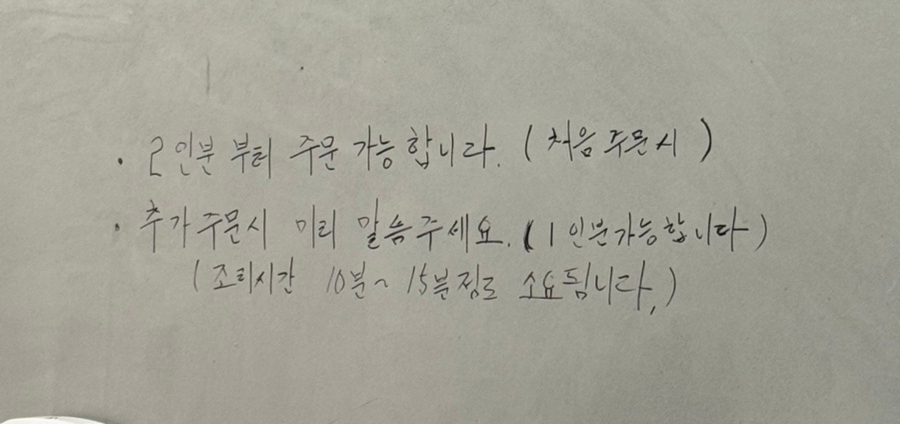 · 2인분 부터 주문 가능합니다. (처음 주문시)
· 추가 주문시 미리 말씀주세요. (1인분가능합니다)
(조리시간 10분~ 15분정도 소요됩니다.)